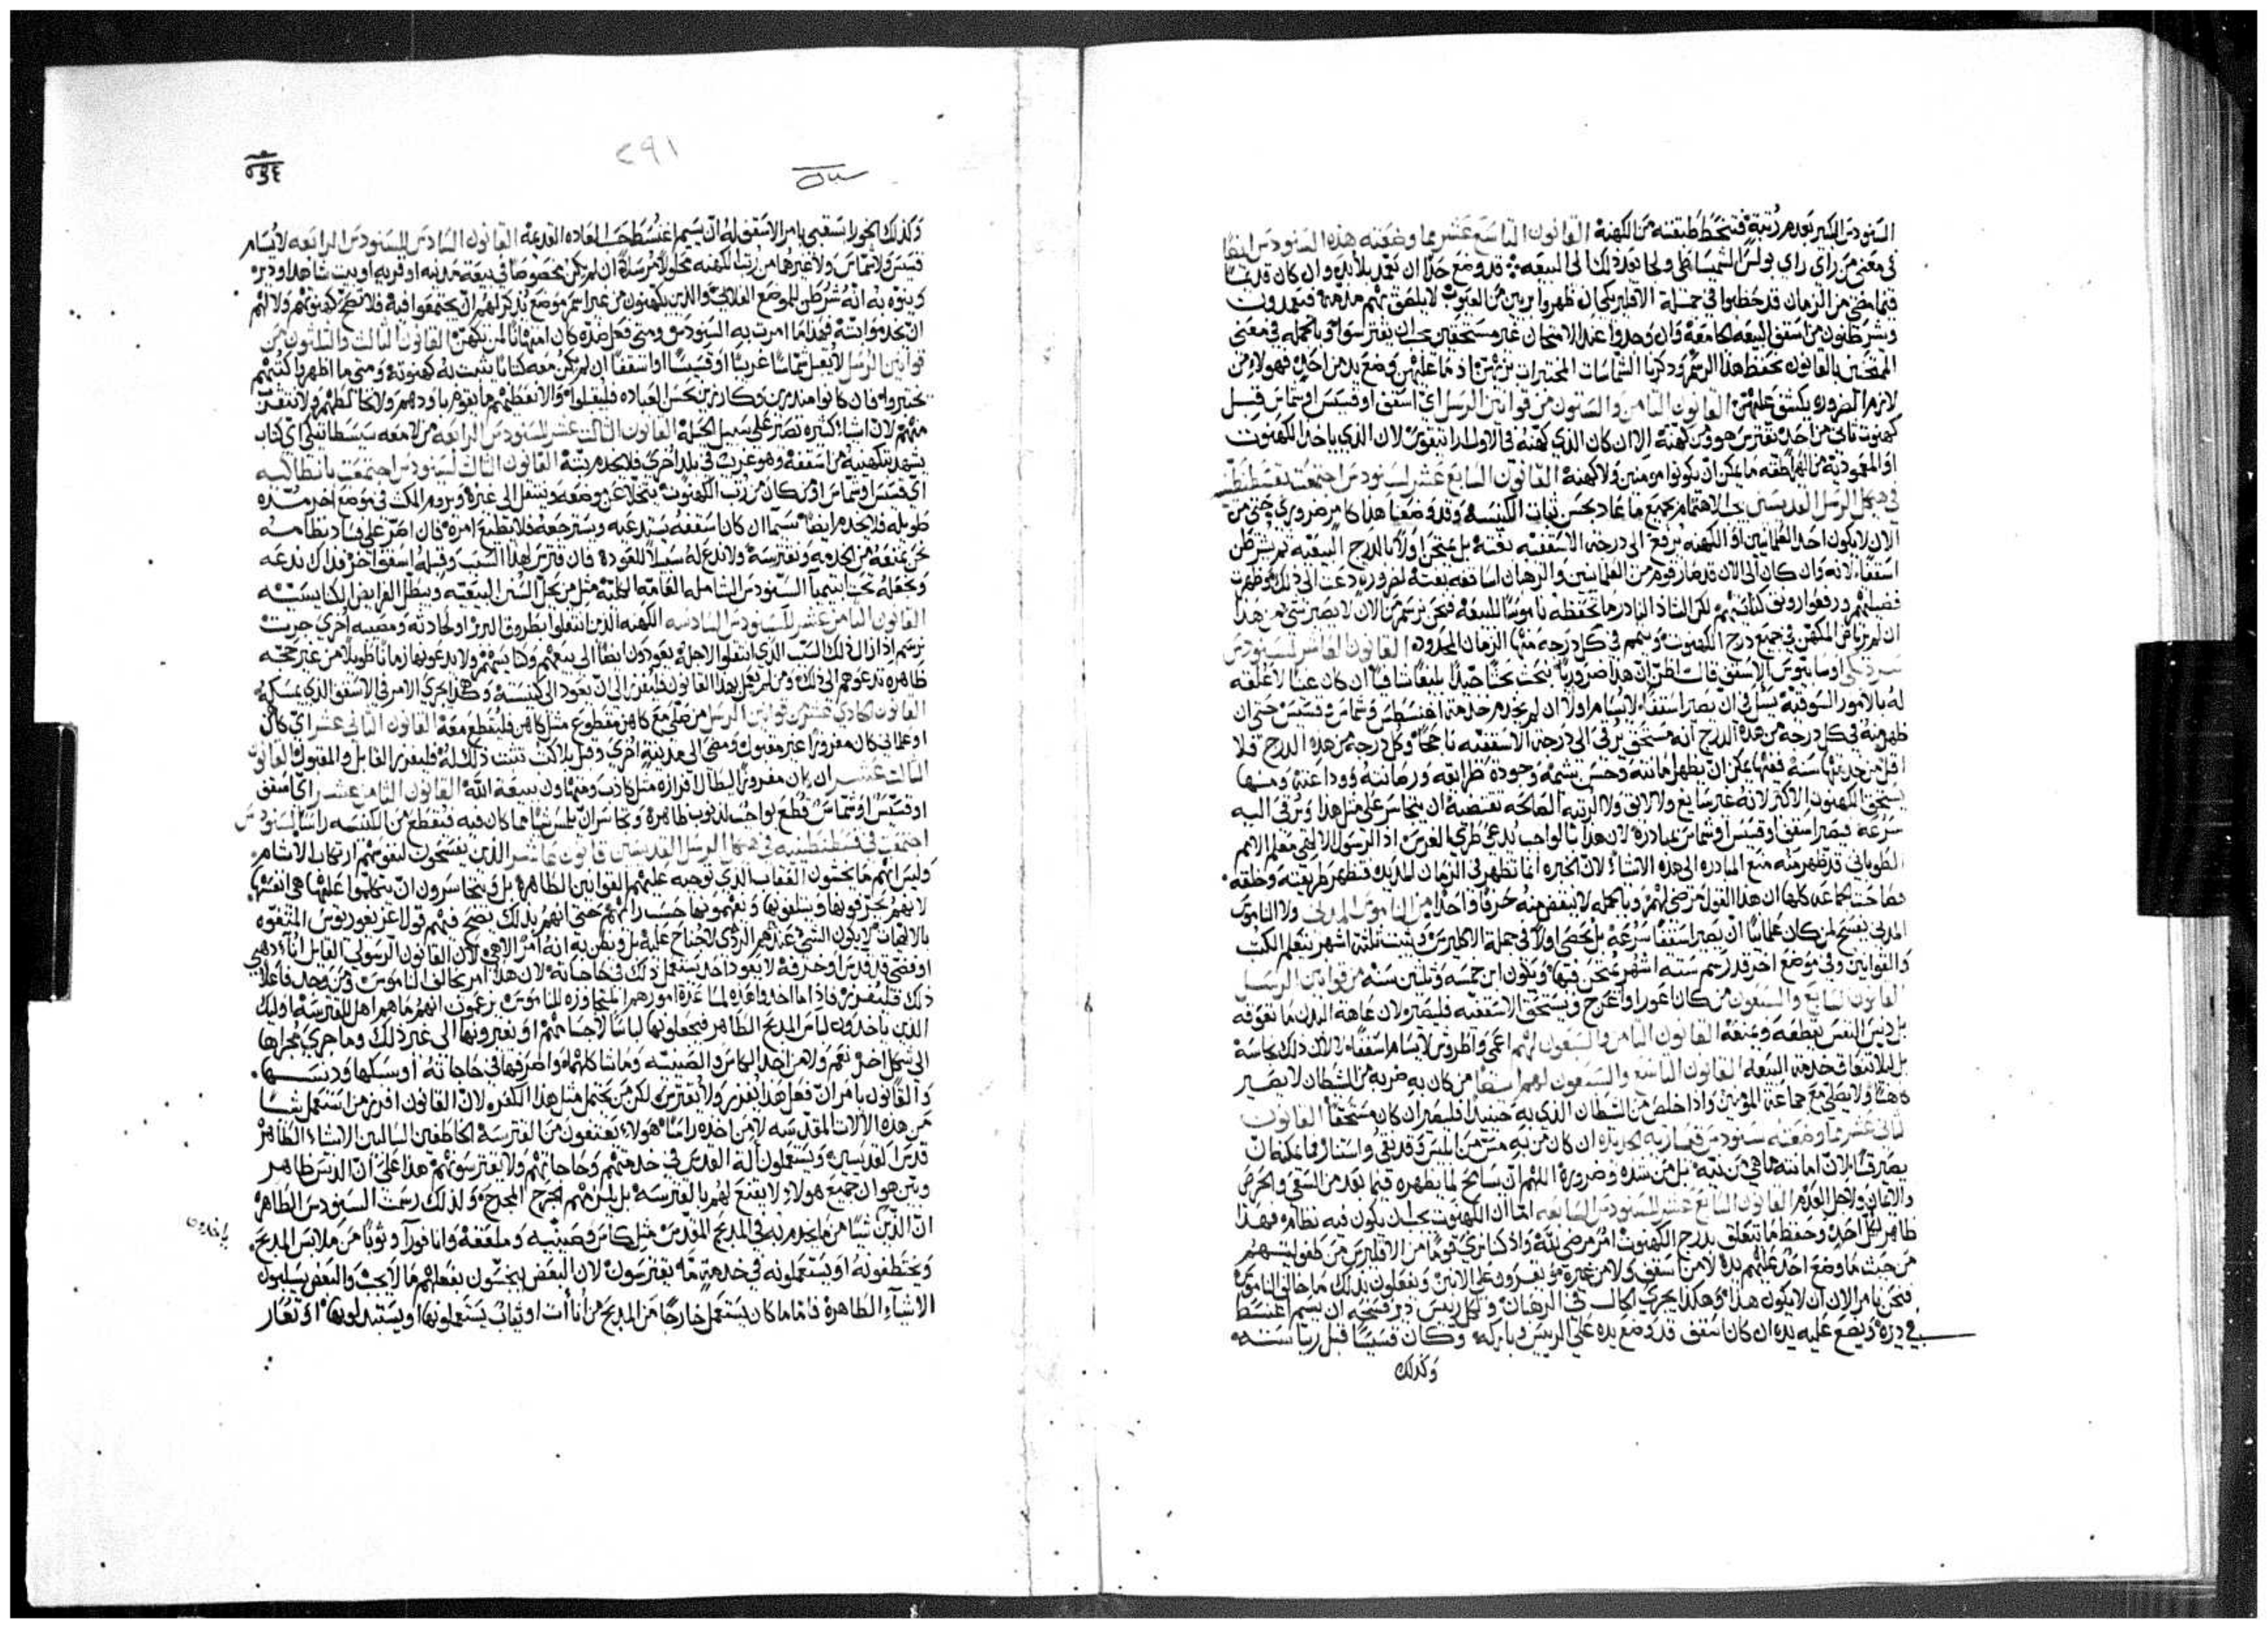 السنودس الكبير بعدم رتبة فتنحط طبقته من الكهنة القانون التاسع عشر مما وضعته هذه السنودس ايضا
في معنى من راي راي بولس الشمساطي ولجا بعد ذلك الى البيعه قد وضع حدا ان يعمد بلا بد وان كان قد
فيما مضى من الزمان قد حظوا في جملة الاقليريكي ان ظهروا بريين من العيوب لا يلصق بهم مذمة فيعمدون
ويشرطنون من اسقف البيعه الجامعة وان وجدوا عند الامتحان غير مستحقين يجب ان يفترسوا وبالجمله في معنى
بالقانون يحفظ هذا الرسم وذكرنا الشماسات
لازم الضروره يكشف عليهن القانون الثامن والستون من قوانين الرسل اي اسقف او قسيس او شماس قبل
كهنوت ثاني من احد يفترس هو ومن كهنه الا ان كان الذي كهنه في الاول لان الذي ياخذ الكهنوت
او المعموديه من الهراطقه ما يمكن ان يكونوا مومنين ولا كهنة القانون السابع عشر لسنودس اجتمعت بقسطنطينيه
في هيكل الرسل القديسين يجب الاهتمام بجميع ما عاد بحسن ثبات الكنيسه وقد وضعنا هذا كامر ضروري حتى من
الان لا يكون احد العلمانيين او الكهنه يرفع الى درجة الاسقفيه بغتة بل يمتحن اولا بالدرج البيعيه ثم يشرطن
اسقفا لانه وان كان الى الان قد صار قوم من العلمانيين والرهبان اساقفه بغتة لضروره دعت الى ذلك وظهرت
فضيلتهم ورفعوا رونق كنايسهم لكن الشاذ النادر ما نحفظه ناموسا للبيعه فنحن نرسم من الان لا يصير شي من هذا
ان لم يرتاض المكهن في جميع درج الكهنوت ويتمم في كل درجه منها الزمان المحدود القانون العاشر لسنودس
سرديكي اوسابيوس الاسقف قال اظن ان هذا ضروريا يبحث بحثا جيدا بليغا شافيا ان كان غنيا لا علقه
له بالامور السوقيه يسل في ان يصير اسقفا لا يسام اولا ان لم يخدم خدمة اغنسطس وشماس وقسيس حتى ان
ظهر منه في كل درجه من هذه الدرج انه مستحق يرقى الى درجة الاسقفيه ناجحا وكل درجه من هذه الدرج فلا
اقل من خدمتها سنة ففيها يمكن ان يظهر امانته وحسن شيمه وجودة طرايقه ورصانته ووداعته ومنها
يستحق الكهنوت الاكثر لانه غير سايغ ولا لايق ولا الرتبه الصالحه تقتضيه ان يتجاسر على مثل هذا ويرقى اليه
سرعه فيصير اسقف او قسيس او شماس مبادرة لان هذا بالواجب يدعى طري الغرس اذ الرسول الالهي معلم الامم
الطوباني قد ظهر منه منع المبادره الى هذه الاشيا لان الخبره انما تظهر في الزمان المديد فتظهر طريقته وخلقه
فصاحت الجماعه كلها ان هذا القول مرضي لهم وبالجمله لا ينقض منه حرفا واحدا من الناموس المدني ولا الناموس
المدني يفسح لمن كان علمانيا ان يصير اسقفا سرعه بل يحصى اولا في جملة الاكليرس ويثبت ثلثة اشهر يتعلم الكتب
والقوانين وفي موضع اخر قد رسم ستة اشهر يمتحن فيها ويكون ابن خمسه وثلثين سنه من قوانين الرسل
القانون السابع والسبعون من كان اعور او اعرج ويستحق الاسقفيه فليصير لان عاهة البدن ما تعوقه
بل دنس النفس يقطعه ويمنعه القانون الثامن والسبعون لهم اعمى واطروش لا يسام اسقفا لا لان ذلك نجاسة
بل ليلا تتعاق خدمة البيعه القانون التاسع والسبعون لهم ايضا من كان به ضربه من الشيطان لا يصير
كاهنا ولا يصلي مع جماعة المومنين واذا خلص من الشيطان الذي به حينيذ فليصير ان كان مستحقا القانون
الثاني عشر مما وضعته سنودس قيصارية الجديده ان كان من به مس من المس وقد نقي واستنار فما يمكنه ان
يصير قسا لان امانته ما هي من نيته بل من شده وضرورة اللهم ان سامح لما يظهره فيما بعد من السعي والحرص
والايمان ولاجل العدم القانون السابع عشر للسنودس السابعه امّا ان الكهنوت يجب ان يكون فيه نظام فهذا
ظاهر لكل احد وحفظ ما يتعلق بدرج الكهنوت امر مرضي لله واذ كنا نرى قوما من الاقليرس من طفوليتهم
من حيث ما وضع احد عليهم يده لا من اسقف ولا من غيره يقرون على الانبن ويفعلون بذلك ما خالف الناموس
فنحن نامر الان ان لا يكون هذا وهكذا يجري الحال في الرهبان وكل رييس دير فسحه ان يسم اغنسط
في ديره ويضع عليه يده ان كان اسقف قد وضع يده على الرييس وباركه وكان قسيسا قبل رياسته
وكذلك
٢٩١
وكذلك الخورا سقفي يامر الاسقف له ان يسيم اغنسط حسب العاده القديمة القانون السادس للسنودس الرابعه لا يسام
قسيس ولا شماس ولا غيرهما من رتب الكهنه محلولا مرسلا ان لم يكن مخصوصا في بيعة مدينه او قريه او بيت شاهد او ديره
كي ينوه به انه شرطن للموضع الفلاني والذين يكهنون من غير اسم موضع يذكر لهم ان يجتمعوا فيه فلا تصح كهنوتهم ولا لهم
ان يخدموا البتة فهذا ما امرت به السنودس ومتى فعل ضده كان امتهانا لمن تكهن القانون الثالث والثلثون من
قوانين الرسل لا يقبل شماسا غريبا او قسيسا او اسقفا ان لم يكن معه كتابا يثبت به كهنوته ومتى ما اظهروا كتبهم
يختبروا فان كانوا منذرين وكارزين بحسن العباده فليقبلوا والا نعطيهم ما يقوم باودهم ولا نخالطهم ولا نتقرب
منهم لان اشيا كثيره تصير على سبيل الحيلة القانون الثالث عشر للسنودس الرابعه من لا معه سيسطاتيكي اي كتاب
يشهد بتكهنيه من اسقفه وهو غريب في بلد اخرى فلا يخدم بتة القانون الثالث لسنودس اجتمعت بانطاكيه
اي قسيس او شماس او من كان من رتب الكهنوت يتخلا عن موضعه وينتقل الى غيره ويروم المكث في موضع اخر مده
طويله فلا يخدم ايضا لا سيما ان كان اسقفه يستدعيه ويسترجعه فلا يطيع امره فان اصر على فساد نظامه
نحن نمنعه من الخدمه ونفترسه ولا ندع له سبيلا للعودة فان فترس لهذا السبب وقبله اسقف اخر فذاك ندعه
ونجعله تحت ابتيميا السنودس الشامله العامه مثل من يحل السنن البيعيه ويبطل الفرايض الكنايسيه
القانون الثامن عشر للسنودس السادسه الكهنه الذين انتقلوا بطروق البربر او لحادثه ومصيبه اخرى جرت
نرسم اذا زال ذلك السبب الذي انتقلوا لاجله يعودون ايضا الى بيعهم وكنايسهم ولا يدعونها زمانا طويلا من غير حجه
ظاهره تدعوهم الى ذلك ومن لم يعمل بهذا القانون فليفرز الى ان يعود الى كنيسته وهكذا يجري الامر في الاسقف الذي يمسكه
القانون الحادي عشر من قوانين الرسل من صلى مع كاهن مقطوع مثل كاهن فليقطع معه القانون الثاني عشر اي كاهن
او علماني كان مفروزا غير مقبول ومضى الى مدينه اخرى وقبل بلا كتب تثبت ذلك له فليفرز القابل والمقبول القانون
الثالث عشر ان كان مفروزا ايطال لافرازه مثل كاذب ومتهاون ببيعة الله القانون الثامن عشر اي اسقف
او قسيس او شماس قطع بواجب لذنوب ظاهرة وتجاسر ان يلمس شيا مما كان فيه فيقطع من الكنيسه راسا السنودس
اجتمعت في قسطنطينيه في هيكل الرسل القديسين قانون عاشر الذين يفسحون لنفوسهم ارتكاب الاثام
وليس انهم ما يخشون العقاب الذي توجبه عليهم القوانين الطاهرة بل ويتجاسرون ان يتكلموا عليها هي انفسها
لانهم يحرفونها ويتعلقونها ويفهمونها حسب رايهم حتى انهم بذلك يصح فيهم قول اغريغوريوس المتفوه
بالالهيات لا يكون الشي عندهم الردي لا جناح عليه بل ويظن به انه امرا الاهي لان القانون الرسولي القايل اناء ذهبي
او فضي قد قدس او خرقة لا يعود احد يستعمل ذلك في حاجاته لان هذا امر يخالف الناموس ومن وجد فاعلا
ذلك فليفرز فاذا ما اخذوا هذه لمساعدة امورهم المتجاوزه للناموس يزعمون انهم ما هم اهل للفترسة اوليك
الذين ياخذون لباس المذبح الطاهر فيجعلونها لباسا لاجسامهم او يغيرونها الى غير ذلك وما جرى مجراها
الى شكل اخر نعم ولا من اخذ الكاس والصينيه وما شاكلهما واصرفها في حاجاته او سبكها ودنسها
والقانون يامر ان فعل هذا يفرز ولا يفترس لكن من يحتمل مثل هذا الكفر لان القانون افرز من استعمل شيا
من هذه الالات المقدسه لا من اخذه راسا هولاء يعتفون من الفترسة الخاطفين السالبين الاشياء الطاهر
قدس القديسين ويستعملون الة القدس في خدمتهم وحاجاتهم ولا يفترسونهم هذا على ان الذنب ظاهر
وبين هو ان جميع هولاء لا يقنع لهم بالفترسه بل يلزمهم الجرح المجرح ولذلك رسمت السنودس الطاهره
ان الذين شيا من ما يخدم به في المذبح المقدس مثل كاس وصينيه وملعقه وانافورا وثوبا من ملابس المذبح
ياخذون
ويختطفونه او يستعملونه في خدمة ما يفترسون لان البعض ينجسون بفعلهم ما لا يجب والبعض يسلبون
الاشياء الطاهرة فاما ما كان يستعمل خارجا من المذبح من اناات او ثياب يستعملونها او يستبدلونها او تعار